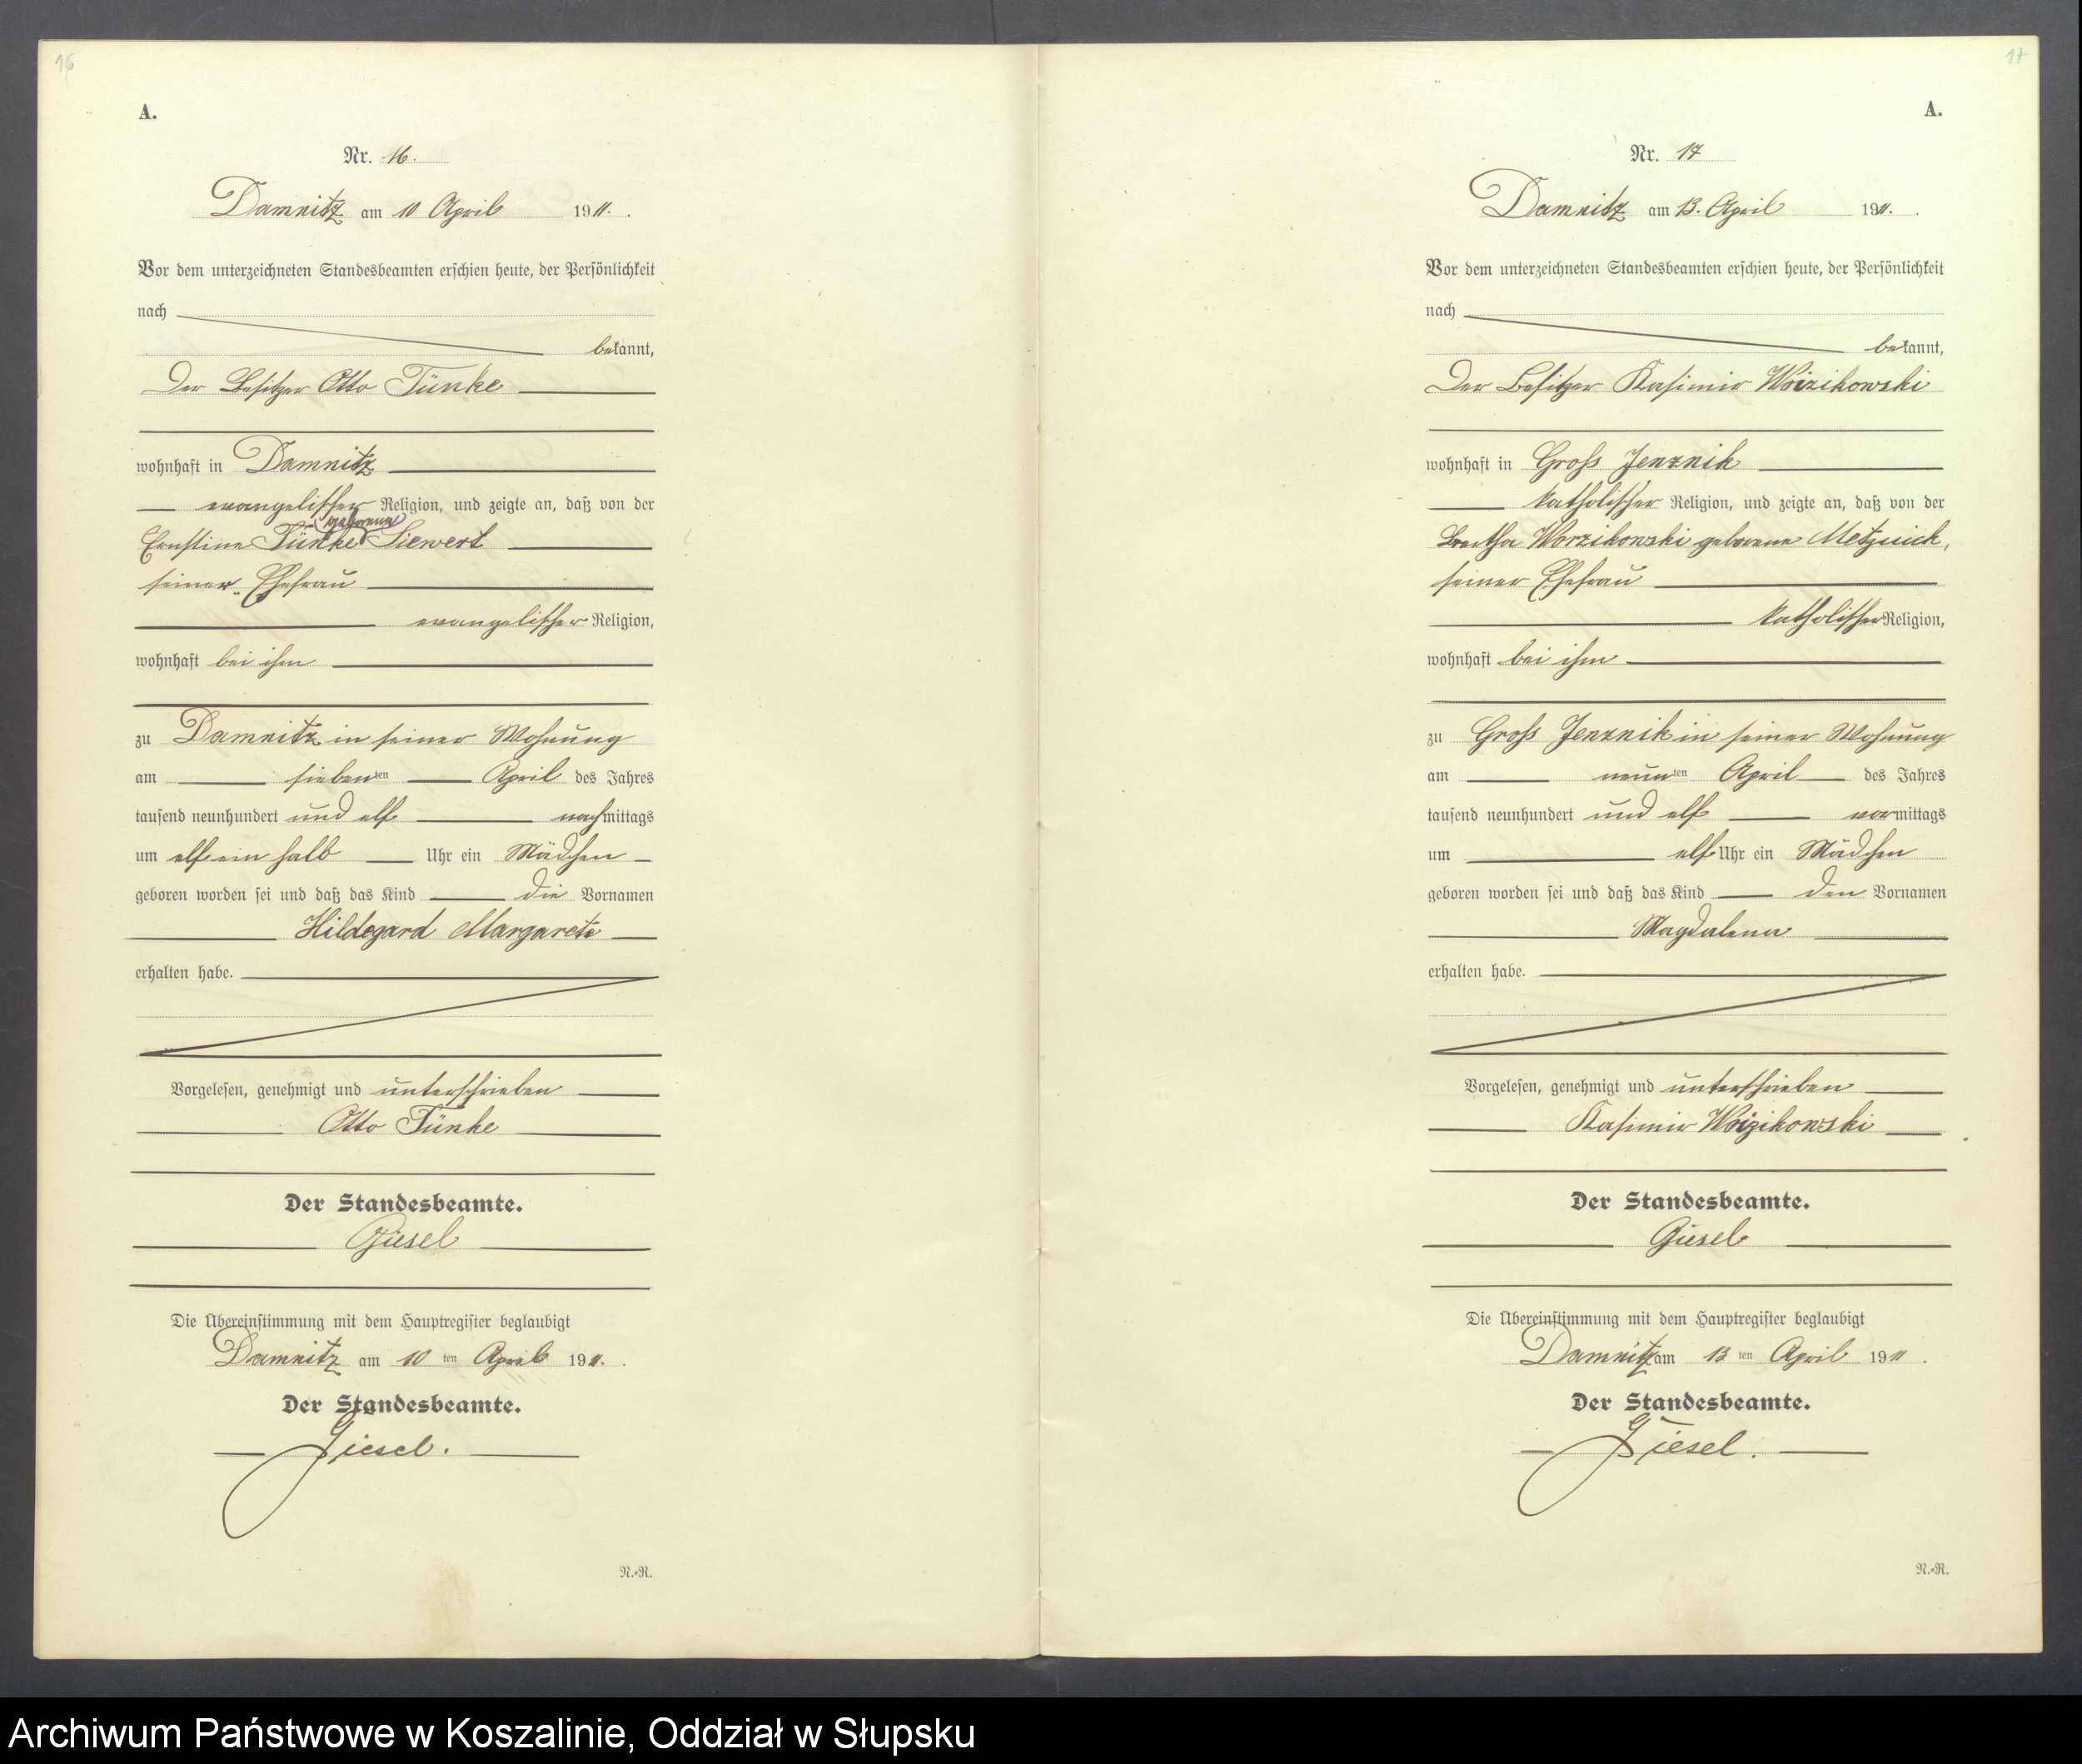 16
A.
Nr. 16.
Damnitz am 10 April 1911.
Vor dem unterzeichneten Standesbeamten erschien heute, der Persönlichkeit
nach
bekannt,
Der Besitzer Otto Tünke
wohnhaft in Damnitz
evangelischer Religion, und zeigte an, daß von der
geborene
Ernstine Tünke Siewert
seiner Ehefrau
evangelischer Religion,
wohnhaft bei ihm
zu Damnitz in seiner Wohnung
am siebenten April des Jahres
tausend neunhundert und elf nachmittags
um elf ein halb Uhr ein Mädchen
geboren worden sei und daß das Kind die Vornamen
Hildegard Margarete
erhalten habe.
Vorgelesen, genehmigt und unterschrieben
Otto Tünke
Der Standesbeamte.
Giesel
Die Übereinstimmung mit dem Hauptregister beglaubigt
Damnitz am 10 ten April 1911.
Der Standesbeamte.
Giesel.
N.-R.
17
A.
Nr. 17
Damnitz am 13. April 1911.
Vor dem unterzeichneten Standesbeamten erschien heute, der Persönlichkeit
nach
bekannt,
Der Besitzer Kasimir Woizikowski
wohnhaft in Gross Jenznik
katholischer Religion, und zeigte an, daß von der
Bertha Worzikowski geborene
seiner Ehefrau
katholischer Religion,
wohnhaft bei ihm
zu Gross Jenznik in seiner Wohnung
am neunten April des Jahres
tausend neunhundert und elf vormittags
um elf Uhr ein Mädchen
geboren worden sei und daß das Kind den Vornamen
Magdalena
erhalten habe.
Vorgelesen, genehmigt und unterschrieben
Kasimir Woizikowski
Der Standesbeamte.
Giesel
Die Übereinstimmung mit dem Hauptregister beglaubigt
Damnitz am 13 ten April 1911.
Der Standesbeamte.
Giesel.
N.-R.
Archiwum Państwowe w Koszalinie, Oddział w Słupsku